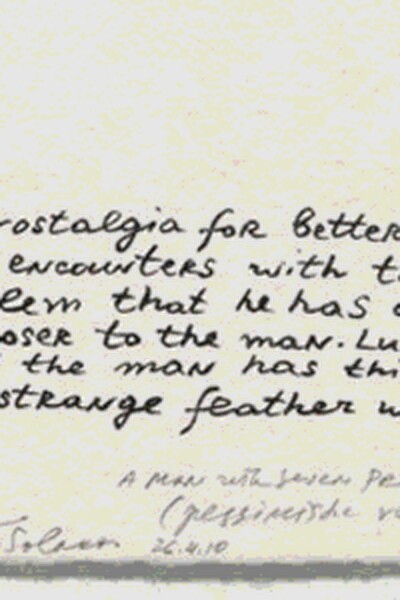 rostalgia for better
encounters with t
lem that he has
oser to the man. Lu
the man has thi
strange feather w
A man with seven Pe
(pessimistic v
26.4.10